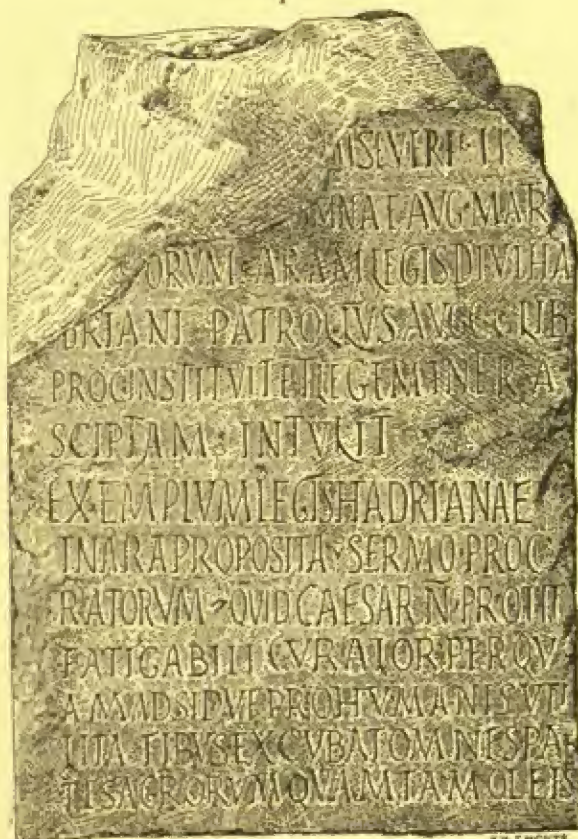 MISEVERI II
MNAE AVG MAR
ORVM ARAM LEGIS DIVI HA
DRIANI PATROCLVS AVGGG LIB
PROC INSTITVIT ET LEGEM INER A
SCIPTAM INTVLIT
EXEMPLVM LEGIS HADRIANAE
IN ARA PROPOSITA SERMO PROC
RATORVM QVID CAESAR N PRO
FATIGABILI CVRA PER QV
AMADSIDVE PRO HVMANIS VTI
LITATIBVS EXCVBAT OMNES PAR
TI SAGRORVM QVAM TAM OLEIS